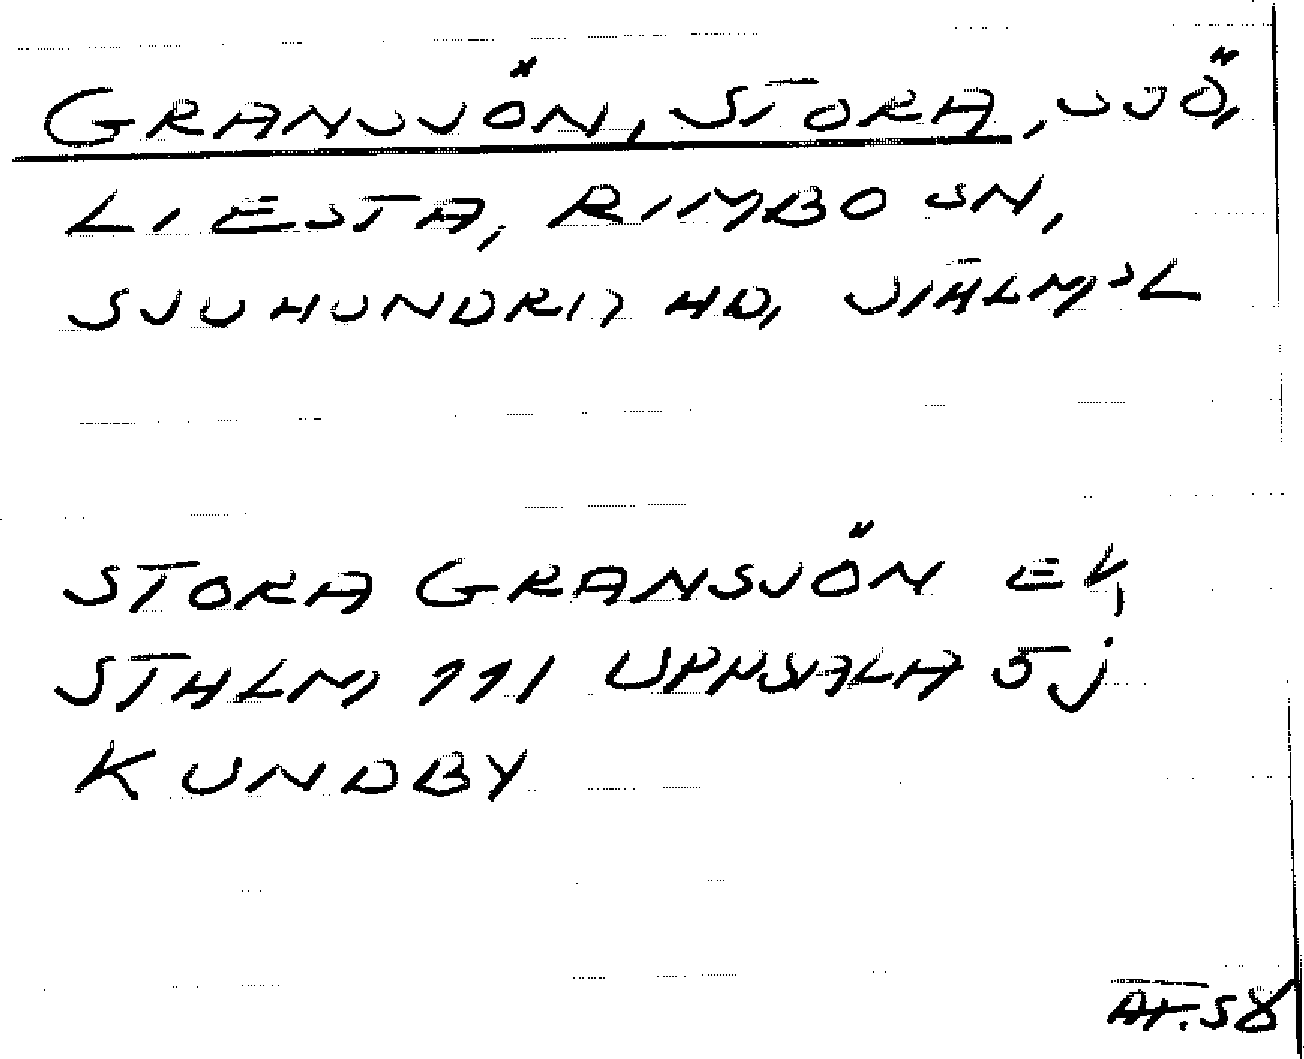 GRANSJÖN, STORA, SJÖ,
LIESTA, RIMBO SN,
SJUHUNDRA HD, STHLMSL
STORA GRANSJÖN EK,
STHLM 111 UPPSALA 5j
KUNDBY
AT.58